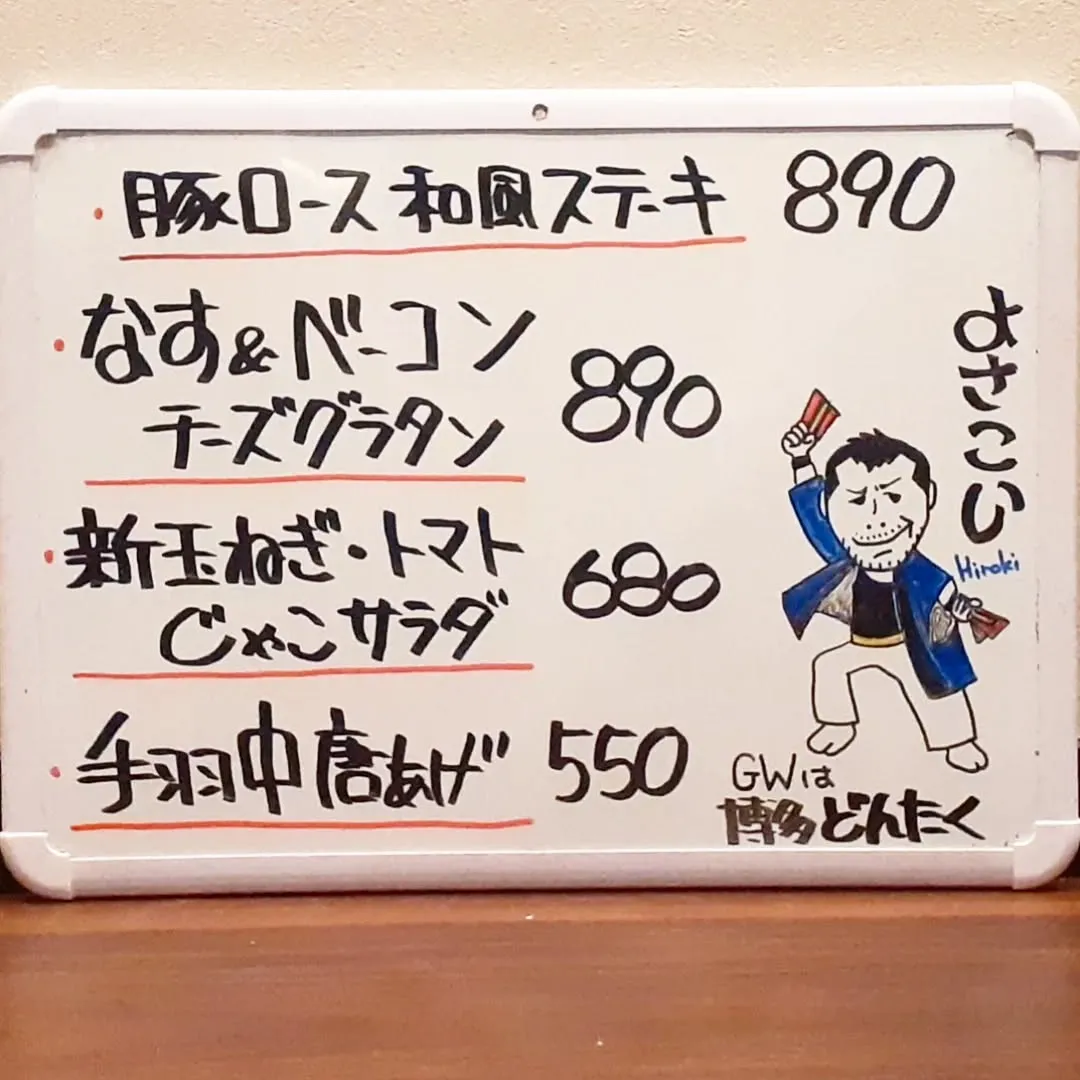 ・豚ロース 和風ステーキ 890
・なす&ベーコン
チーズグラタン 890
・新玉ねぎ・トマト
じゃこサラダ 680
・手羽中唐あげ 550
よさこい
Hiroki
GWは
博多どんたく